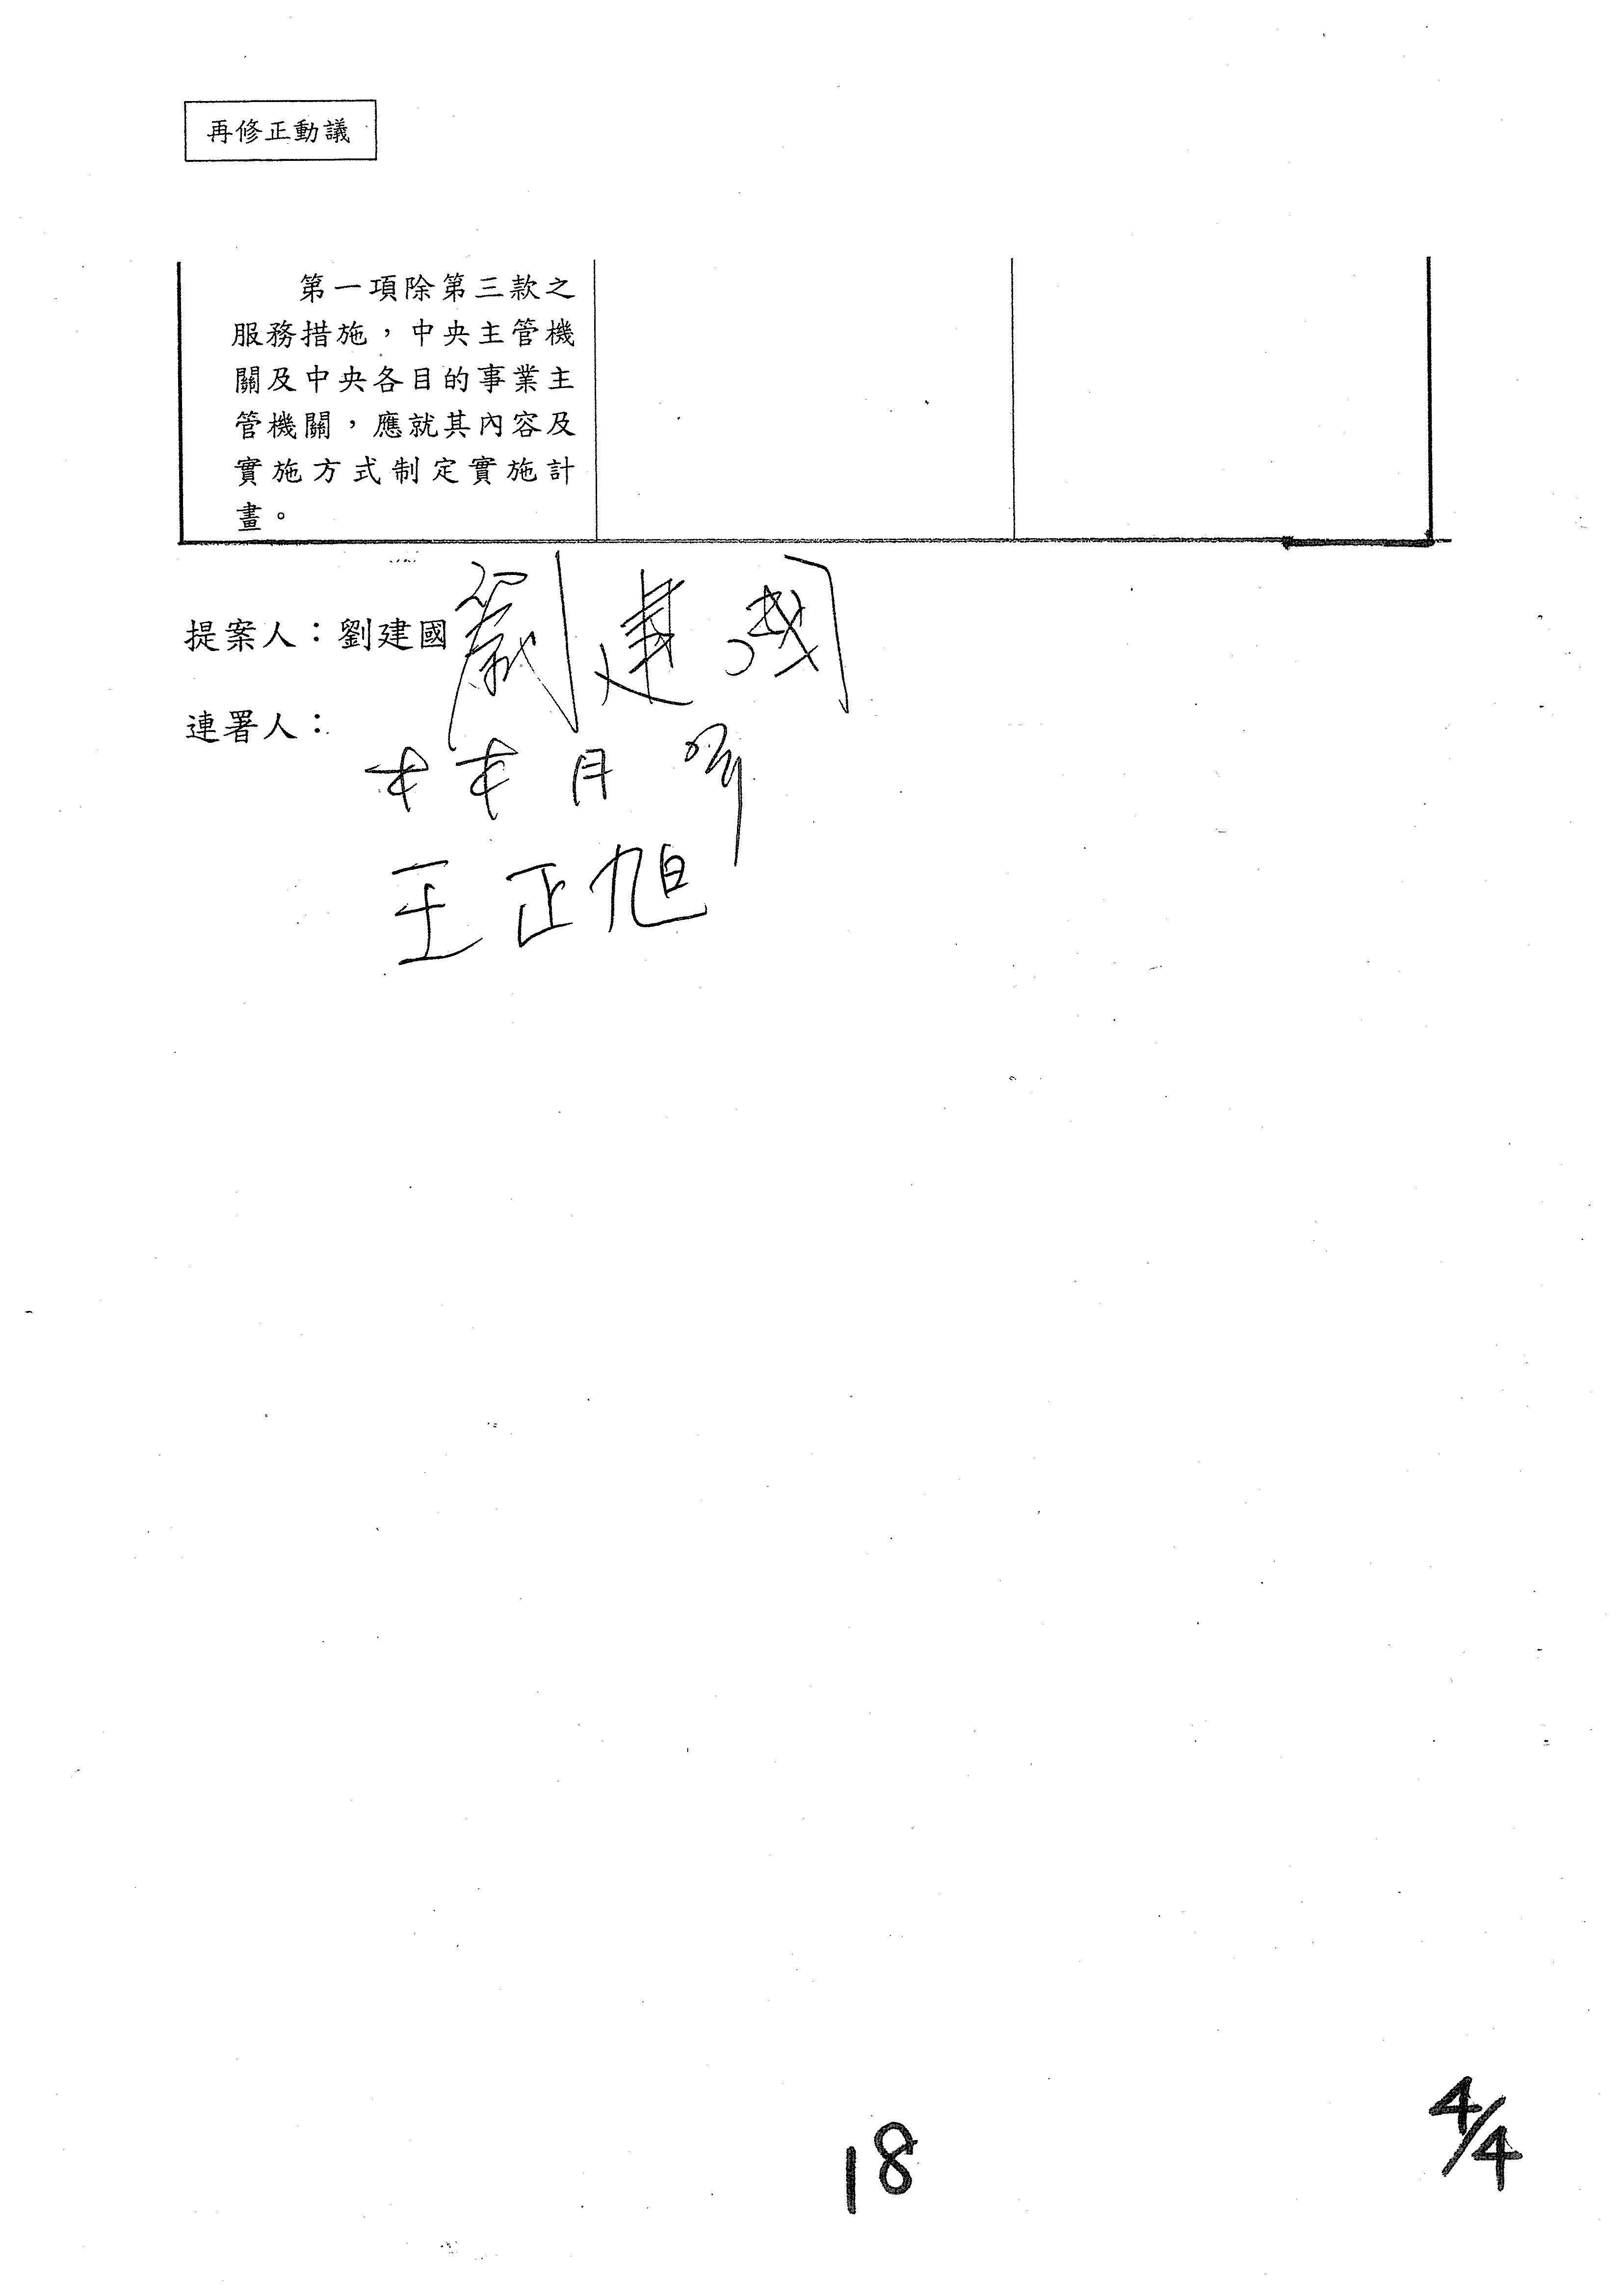 再修正動議
第一項除第三款之
服務措施，中央主管機
關及中央各目的事業主
管機關，應就其內容及
實施方式制定實施計
畫。
提案人：劉建國 劉建國
連署人：
林月琴
王正旭
18
4/4